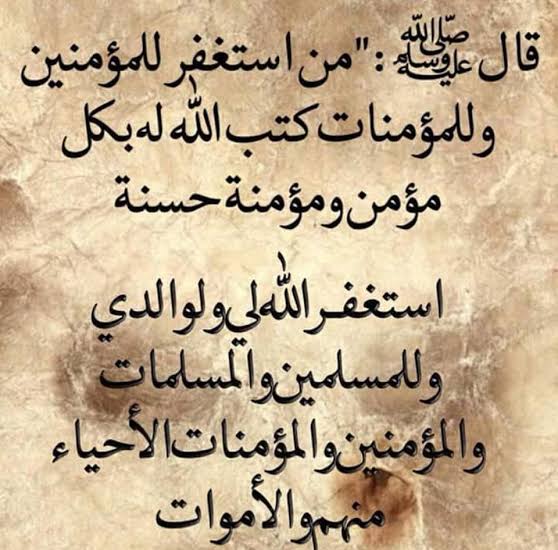 قال ﷺ : "من استغفر للمؤمنين
وللمؤمنات كتب الله له بكل
مؤمن ومؤمنة حسنة
استغفر الله لي ولوالدي
وللمسلمين والمسلمات
والمؤمنين والمؤمنات الأحياء
منهم والأموات